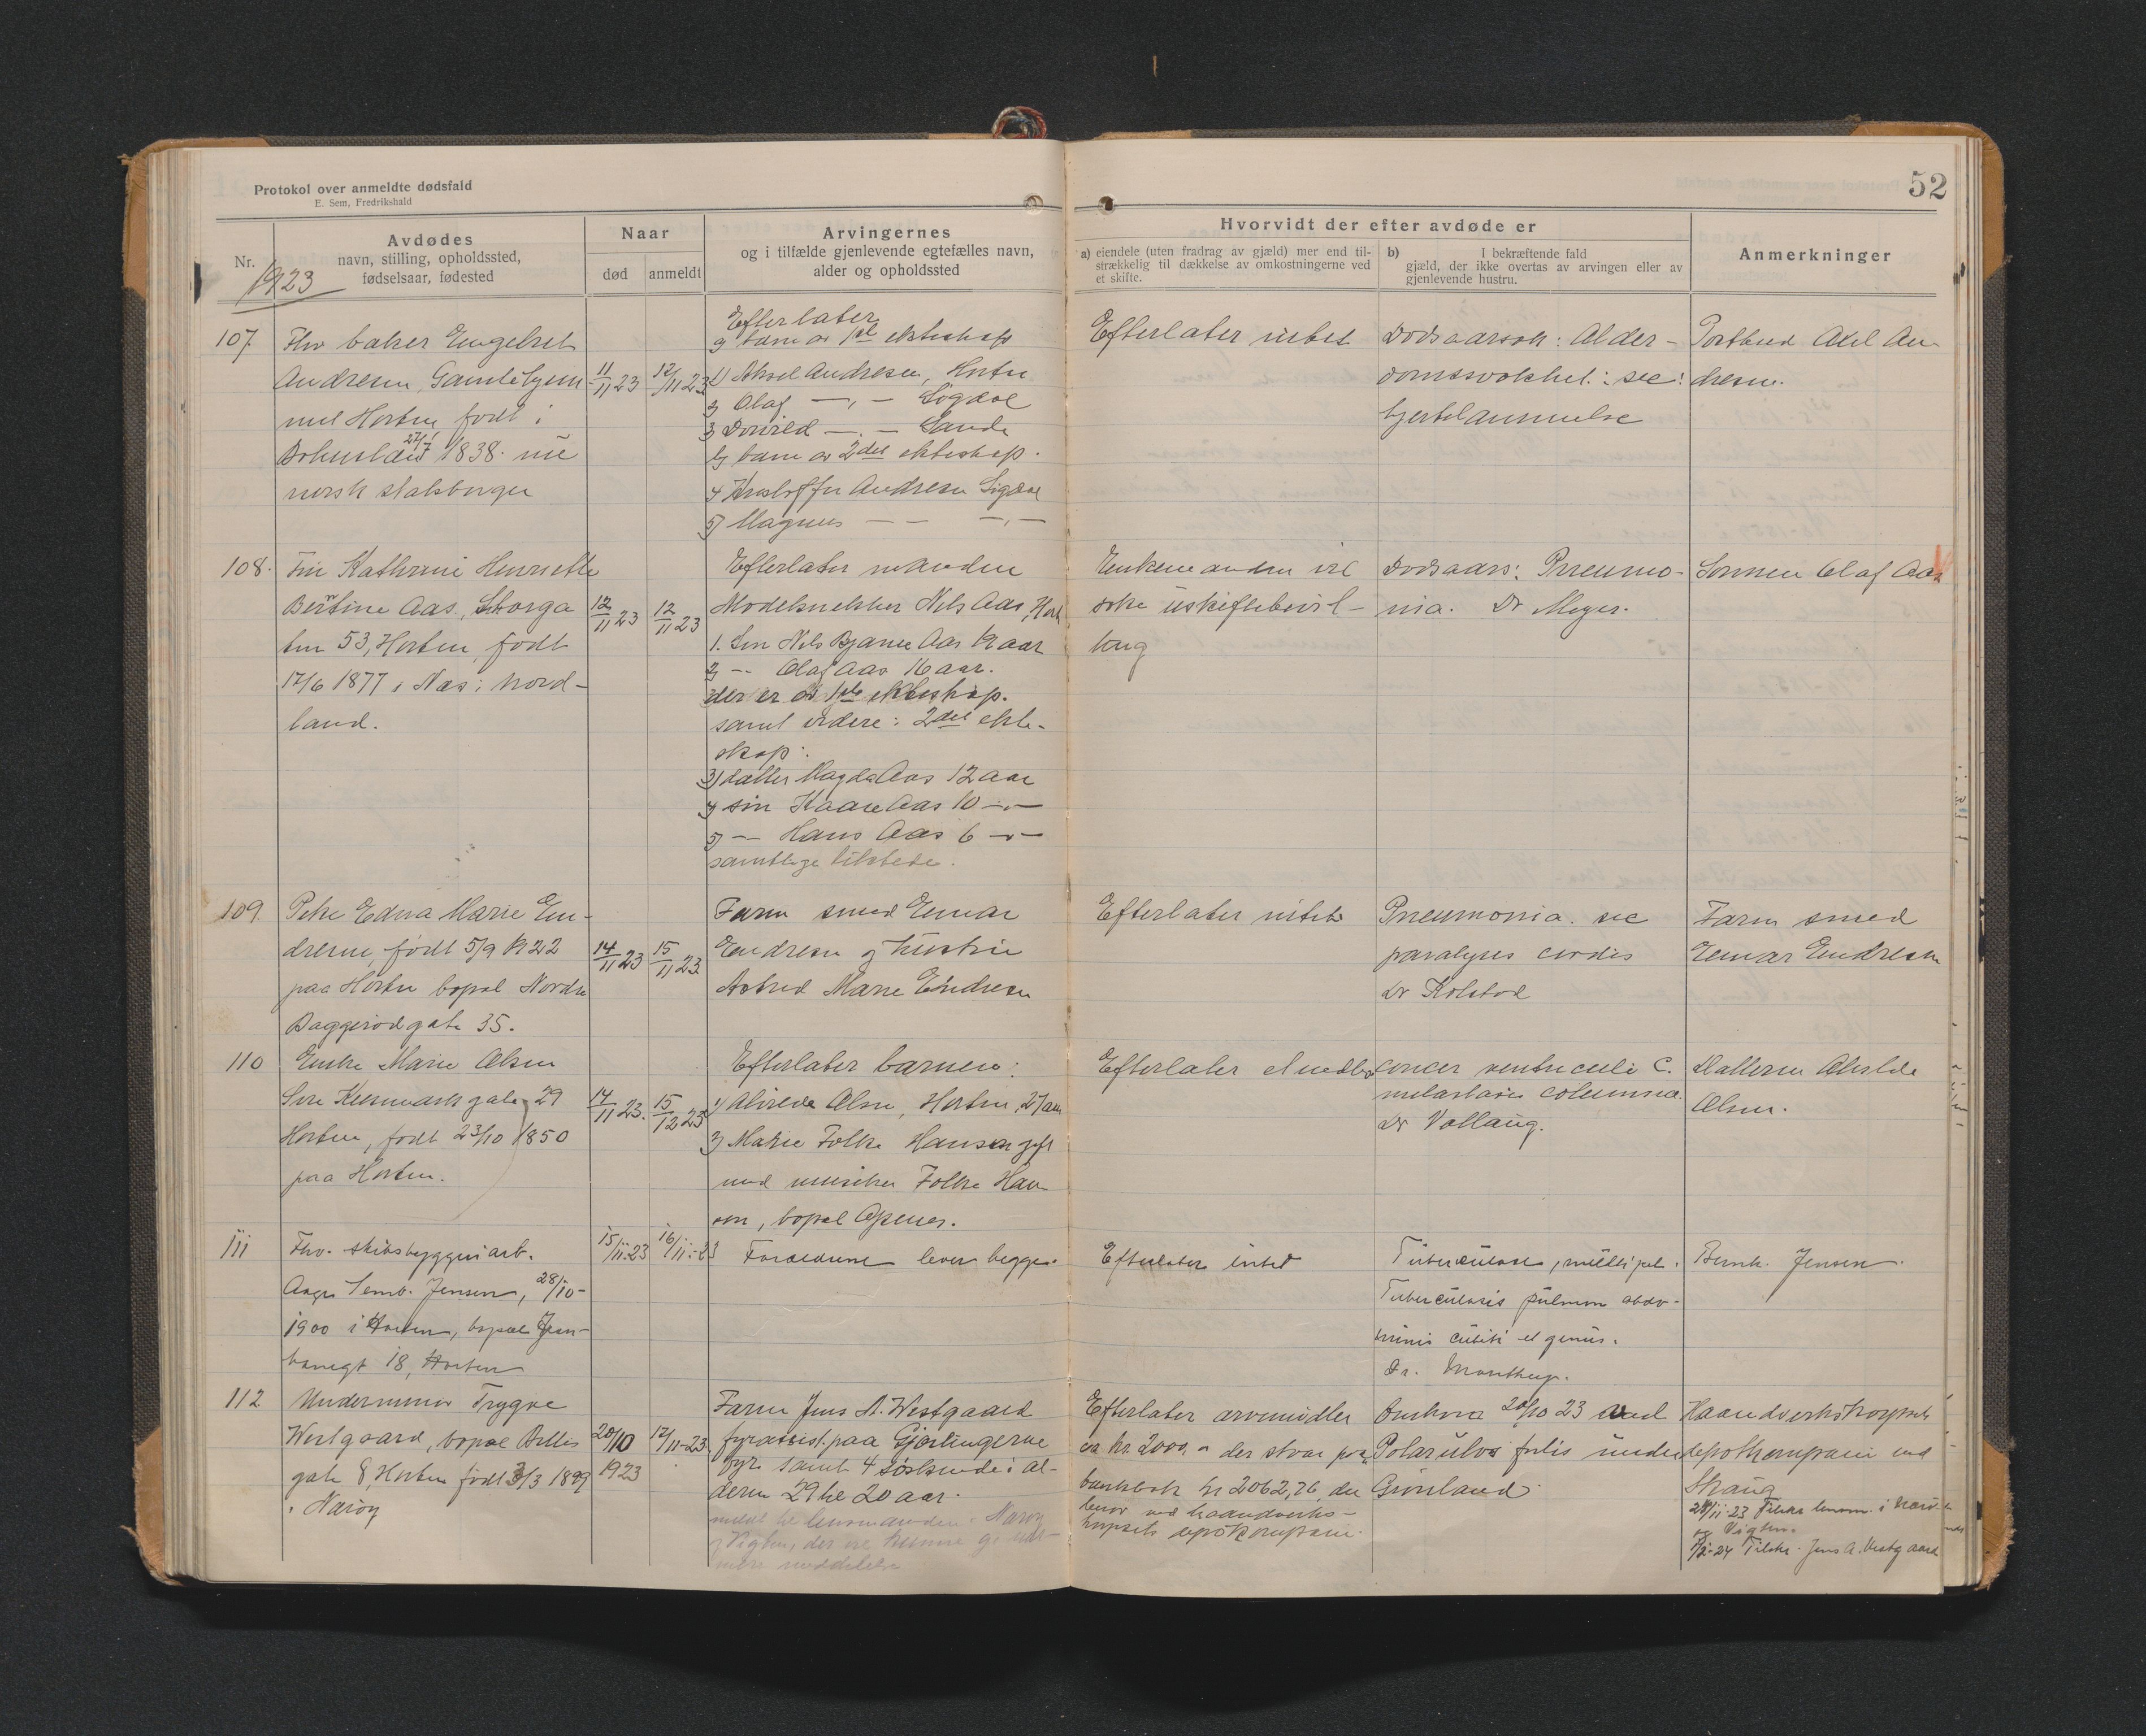 Protokol over anmeldte dødsfald
E. Sem, Fredrikshald
52
Nr.
1923
Avdødes
navn, stilling, opholdssted,
fødselsaar, fødested
Naar
død
anmeldt
Arvingernes
og i tilfælde gjenlevende egtefælles navn,
alder og opholdssted
Hvorvidt der efter avdøde er
a) eiendele (uten fradrag av gjæld) mer end til-
strækkelig til dækkelse av omkostningerne ved
et skifte.
b) I bekræftende fald
gjæld, der ikke overtas av arvingen eller av
gjenlevende hustru.
Anmerkninger
107.
Fhv baker Engelbret
Andresen, Gamlebyen
ved Horten født i
27/7 1838.
norsk statsborger
11/11 23
12/11 23
Efterlater
a) barn av 1ste ekteskap
1) Aksel Andresen, Horten
2) Olaf —„— Sigdal
3) —„— Sande
b) barn av 2det ekteskap.
4) Kristoffer Andresen Sigdal
5) Magnus — — —„—
Efterlater intet
Dødsaarsak: Alder-
domssvakhet: sec:
hjertelammelse
Postbud Axel An-
dresen.
108.
Fru Kathrine Henriette
Berntine Aas, Storga
ten 53, Horten, født
17/6 1877 i Næs i Nord-
land.
12/11 23
12/11 23
Efterlater manden
Modelsnekker Nils Aas, Hort
1. Søn Nils Bjarne Aas 19 aar
2) -- Olaf Aas 16 aar.
der er av 1ste ekteskap.
samt videre i 2det ekte-
skap:
3) datter Magda Aas 12 aar
4) søn Kaare Aas 10 —„—
5) — Hans Aas 6 —„—
samtlige tilstede.
Enkemanden vil
søke uskiftebevil-
ling
Dødsaars: Pneumo-
nia. Dr Meyer.
Sønnen Olaf Aas
109
Pike Edna Marie En-
dresen, født 5/9 1922
paa Horten bopæl Nordre
Baggerødgate 35.
14/11 23
15/11 23.
Faren smed Einar
Endresen og hustru
Astrid Marie Endresen
Efterlater intet
Pneumonia. sec
paralyses cordis
Dr Kolstad
Faren smed
Einar Endresen
110
Enke Marie Olsen
gate 29
Horten, født 23/10 1850
paa Horten.
14/11 23.
15/12 23
Efterlater barnen:
1) Olsen, Horten, 27 aar
2) Marie Folke Hansen gift
med musiker Folke Han-
sen, bopæl
Efterlater
cancer ventriculi c.
metastasis columna.
Dr Vollaug.
Datteren
Olsen.
111
Fhv. skibsbyggeriarb.
Aage Semb. Jensen, 28/10-
1900 i Horten, bopæl Jern-
banegt 18, Horten
15/11-23
16/11-23
Forældrene lever begge.
Efterlater intet
Tuberculose, multipel.
Tuberculosis pulmon abdo-
minis cubiti et genus.
Dr.
Bernh. Jensen.
112
Underminør Trygve
Westgaard, bopæl
gate 8, Horten født 3/3 1899
i Nærøy
20/10
1923
17/11-23.
Faren Jens A. Westgaard
fyrassist. paa Gjæslingerne
fyr samt 4 søskende i al-
deren 29 til 20 aar.
meldt til lensmanden i Nærøy
og Vigten, der vil kunne gi nær-
mere meddelelse
Efterlater arvemidler
ca kr. 2000.- der staar paa
bankbok kr 2062,76, der
beror ved haandverks-
korpsets depotkompani.
Omkom 20/10 23 ved
Polarulvs forlis under
Grønland.
Haandverkskorpsets
depotkompani ved
Skaug
i Nærø-
og Vigten.
Tilskr. Jens A. Vestgaard